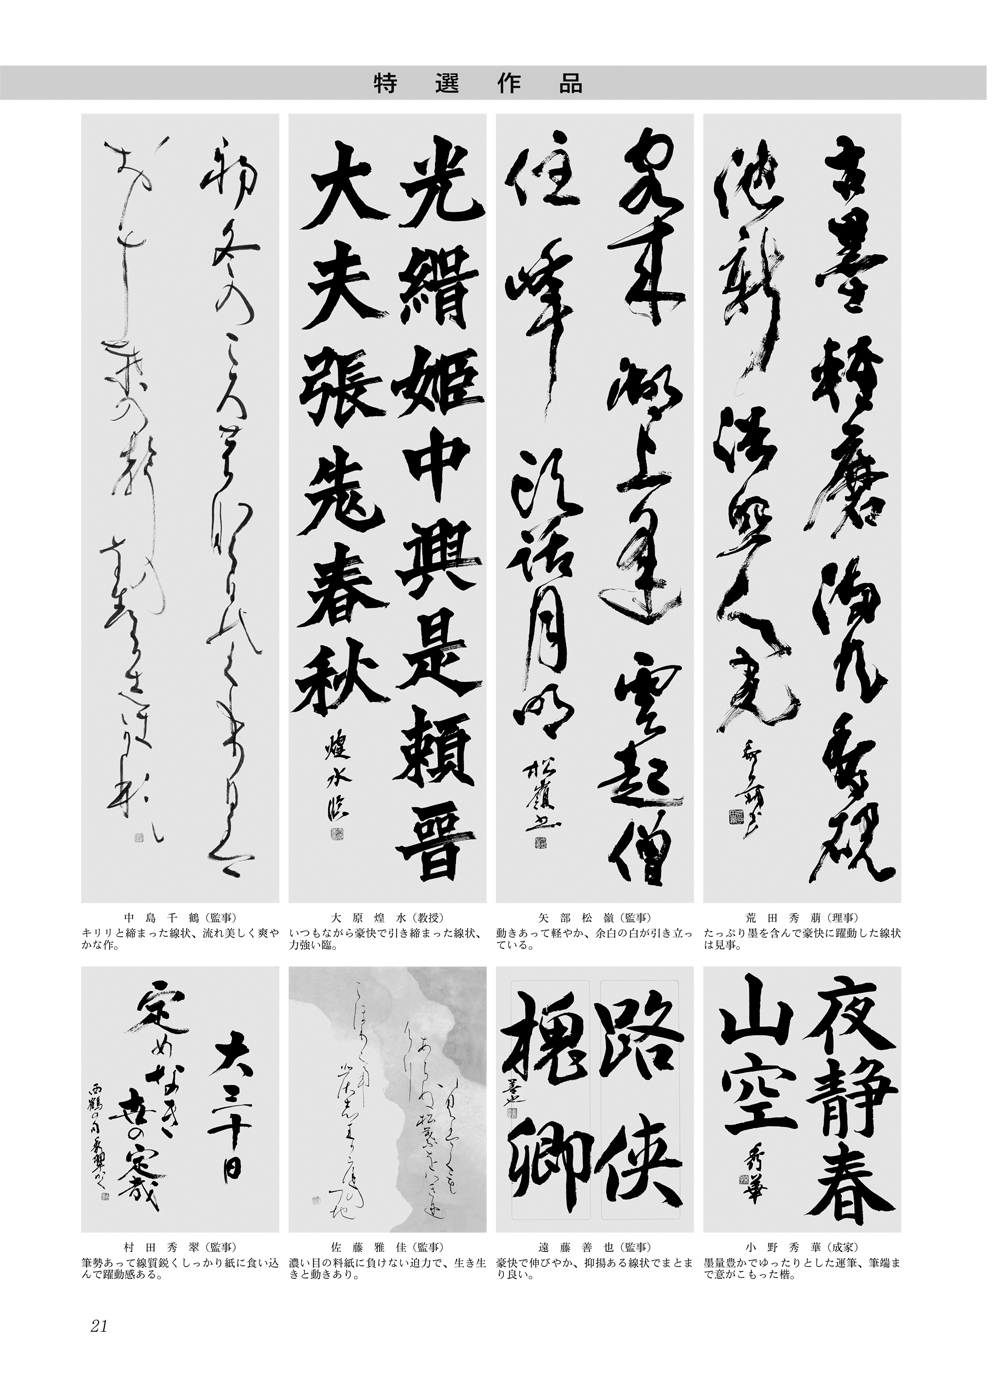 特選作品
古墨軽磨満几香硯
池新浴照人光
客來湖上逢雲起僧
住峰頭話月明
松嶺書
光縉姫中興是頼晋
大夫張先春秋
煌水臨
初冬の
荒田秀萠（理事）
たっぷり墨を含んで豪快に躍動した線状
は見事。
矢部松嶺（監事）
動きあって軽やか、余白の白が引き立っ
ている。
大原煌水（教授）
いつもながら豪快で引き締まった線状、
力強い臨。
中島千鶴（監事）
キリリと締まった線状、流れ美しく爽や
かな作。
夜静春
山空
秀華
路侠
槐卿
善也
大三十日
定めなき
世の定哉
西鶴の句
小野秀華（成家）
墨量豊かでゆったりとした運筆、筆端ま
で意がこもった楷。
遠藤善也（監事）
豪快で伸びやか、抑揚ある線状でまとま
り良い。
佐藤雅佳（監事）
濃い目の料紙に負けない迫力で、生き生
きと動きあり。
村田秀翠（監事）
筆勢あって線質鋭くしっかり紙に食い込
んで躍動感ある。
21